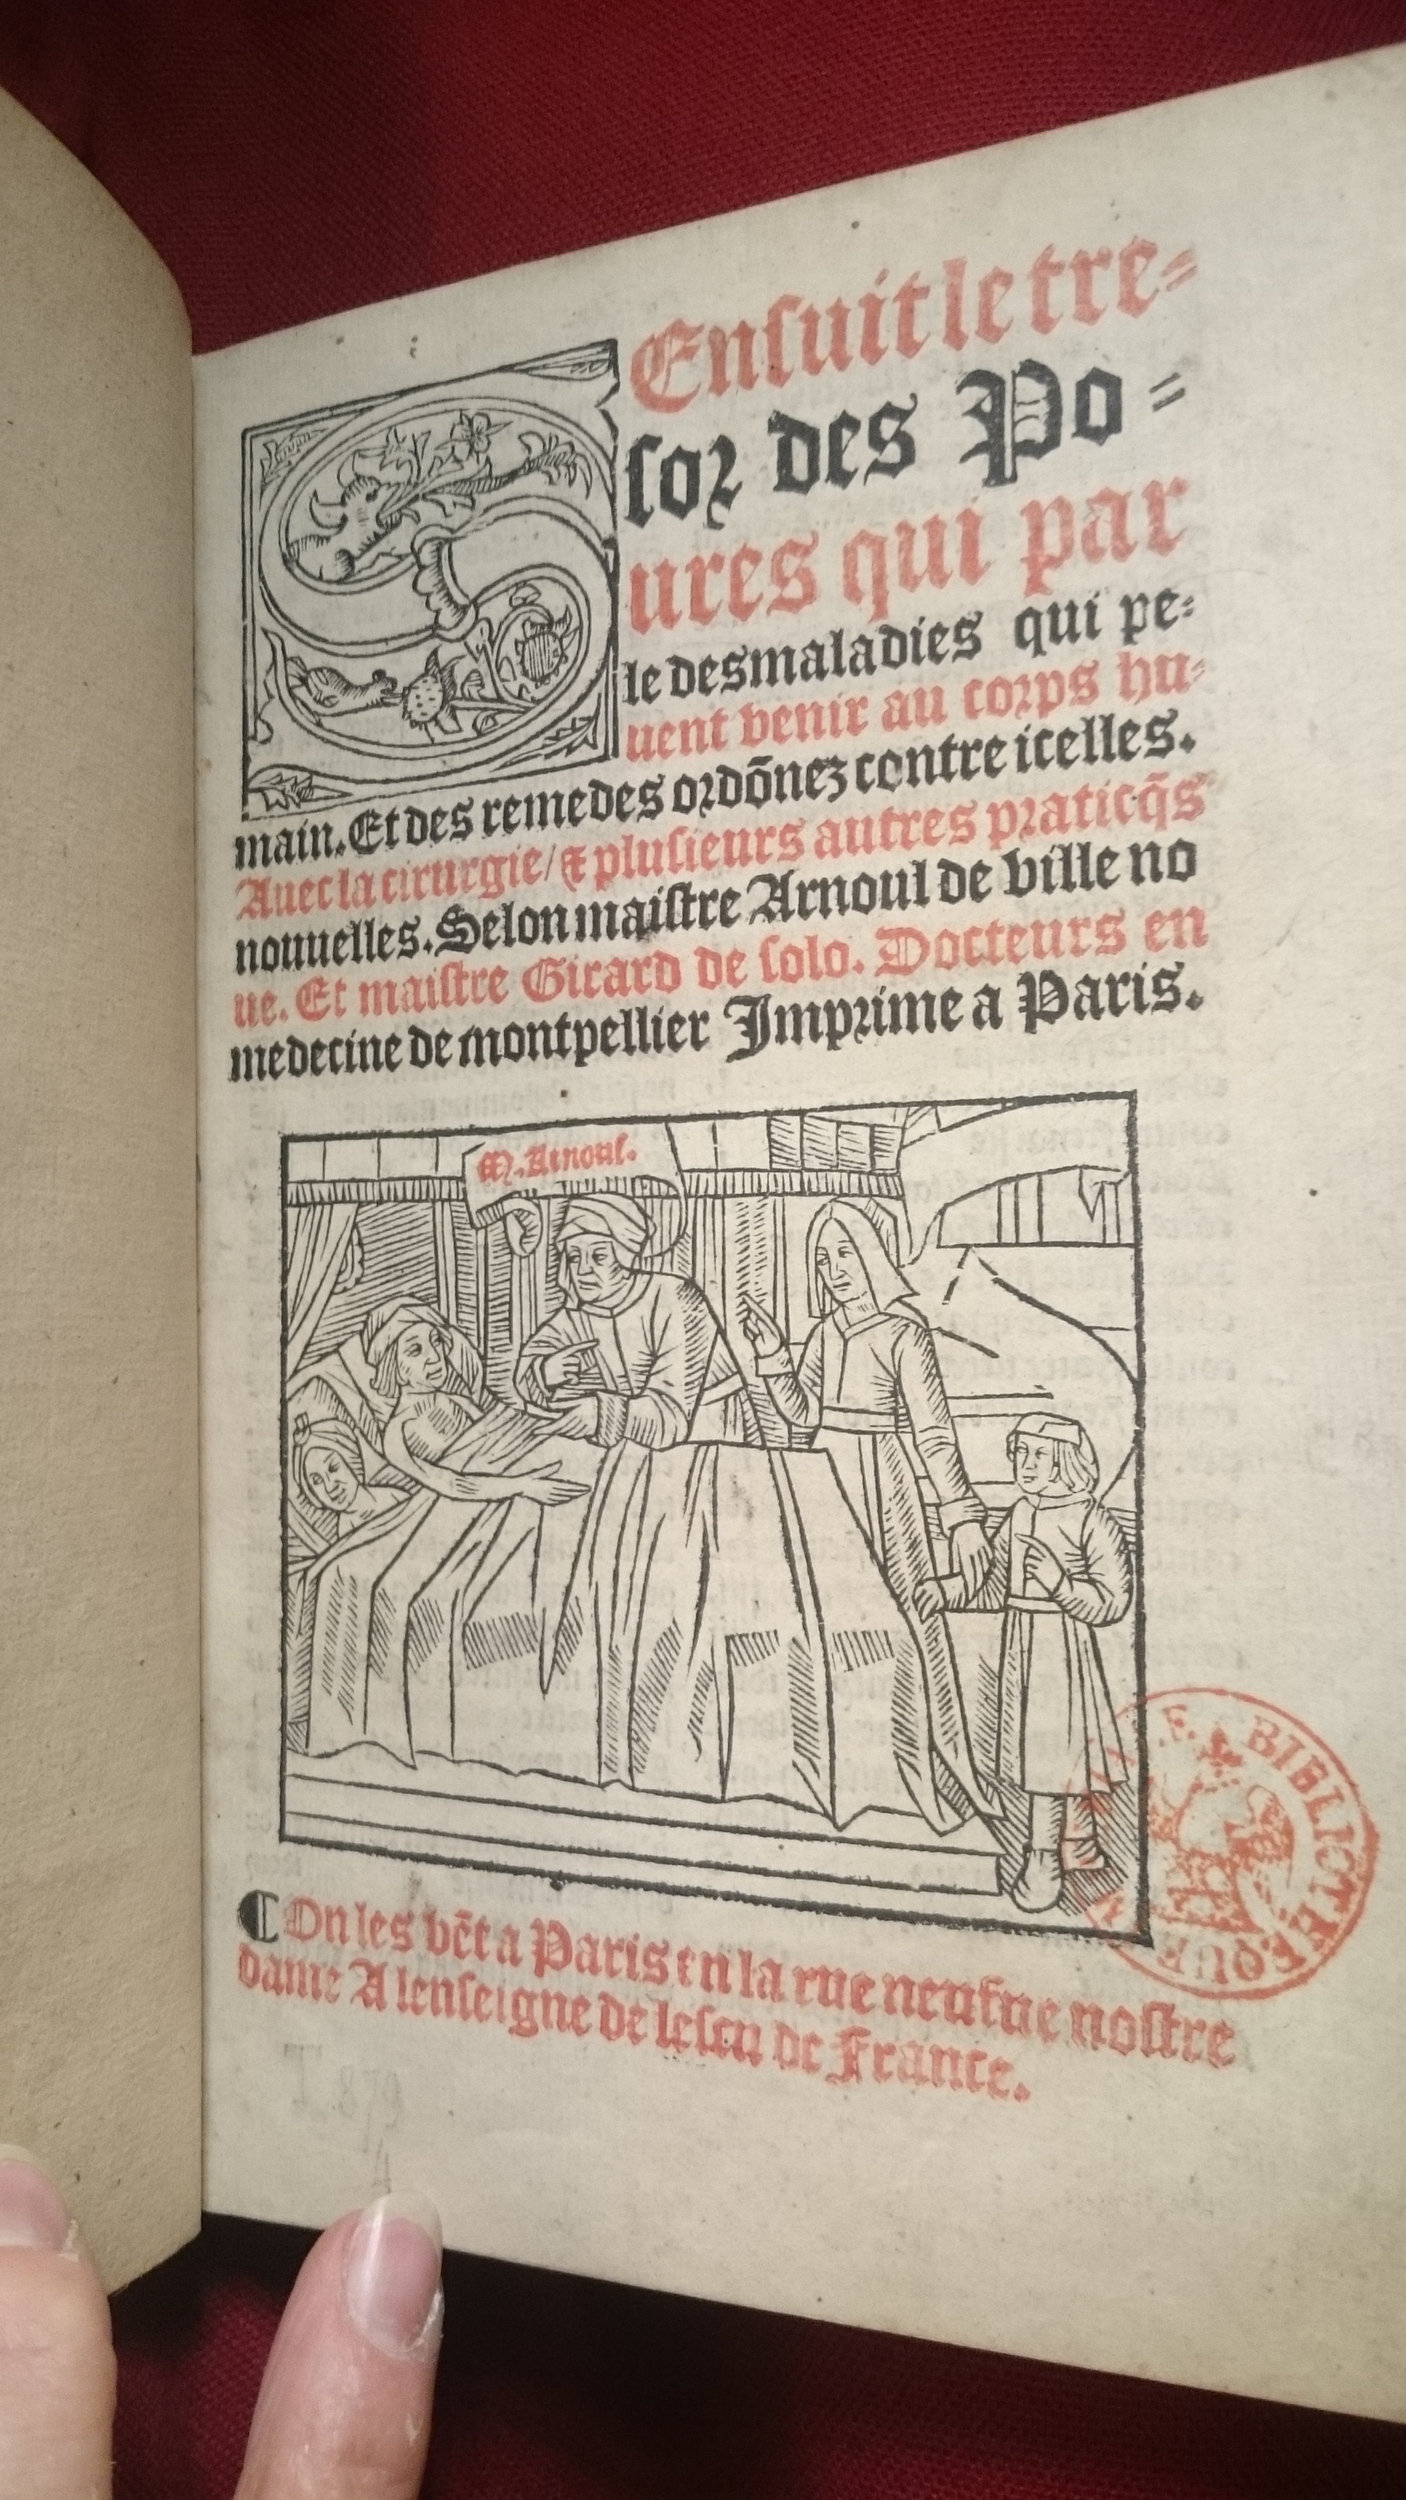 S
Ensuit le tre=
sor des Po=
ures qui par
le des maladies qui pe=
uent venir au corps hu=
main. Et des remedes ordōnez contre icelles.
Auec la cirurgie/ & plusieurs autres praticq̄s
nouuelles. Selon maistre Arnoul de ville no
ue. Et maistre Girard de solo. Docteurs en
medecine de montpellier Imprime a Paris.
M. Arnoul.
¶ On les vēt a Paris en la rue neufue nostre
dame A lenseigne de lescu de France.
BIBLIOTHEQUE